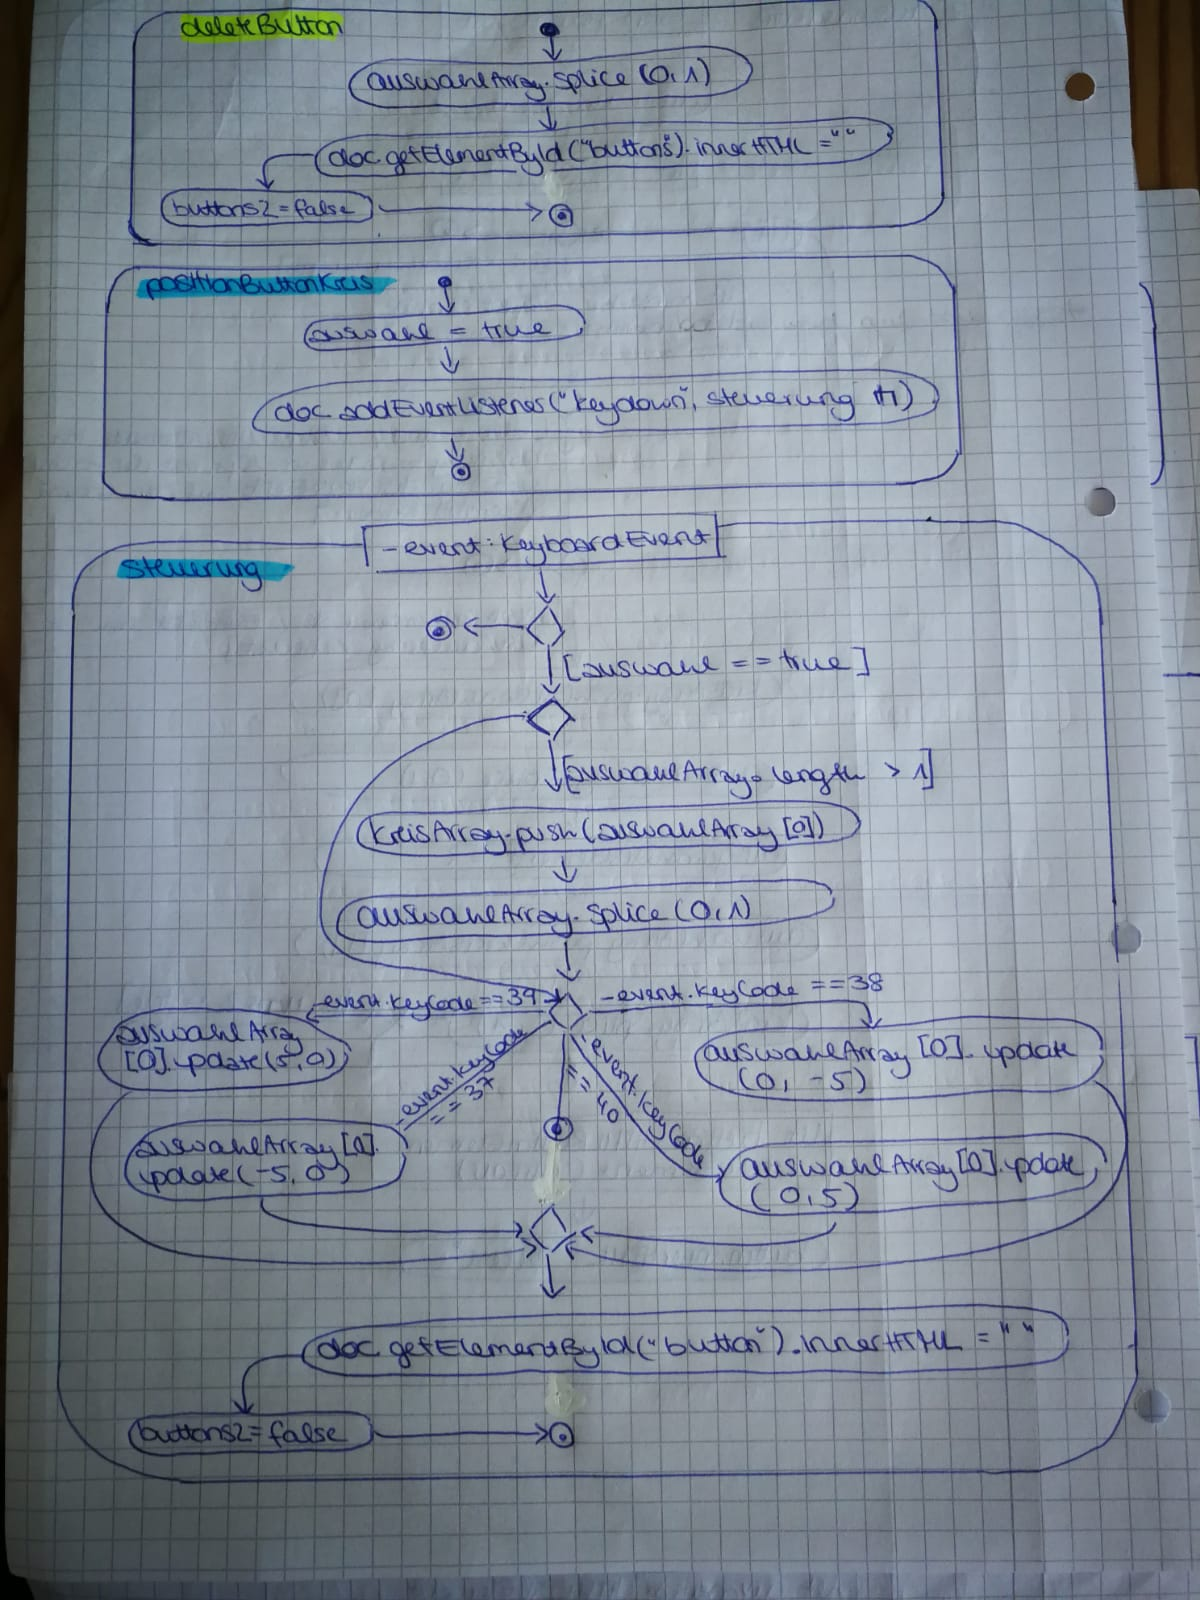 deleteButton
auswahlArray.splice(0,1)
doc.getElementById("buttons").innerHTML =""
buttons2=false
positionButtonKreis
auswahl = true
doc.addEventListener("keydown", steuerung
steuerung
-event:KeyboardEvent
[auswahl == true]
[auswahlArray.length > 1]
KreisArray.push(auswahlArray[0])
auswahlArray.splice(0,1)
-event.keyCode==39
-event.keyCode ==38
auswahlArray
[0].update(5,0)
auswahlArray[0].update
(0, -5)
-event.keyCode
==37
event.keyCode
==40
auswahlArray[0].
update(-5,0)
auswahlArray[0].update
(0,5)
doc.getElementById("button").innerHTML = ""
buttons2=false